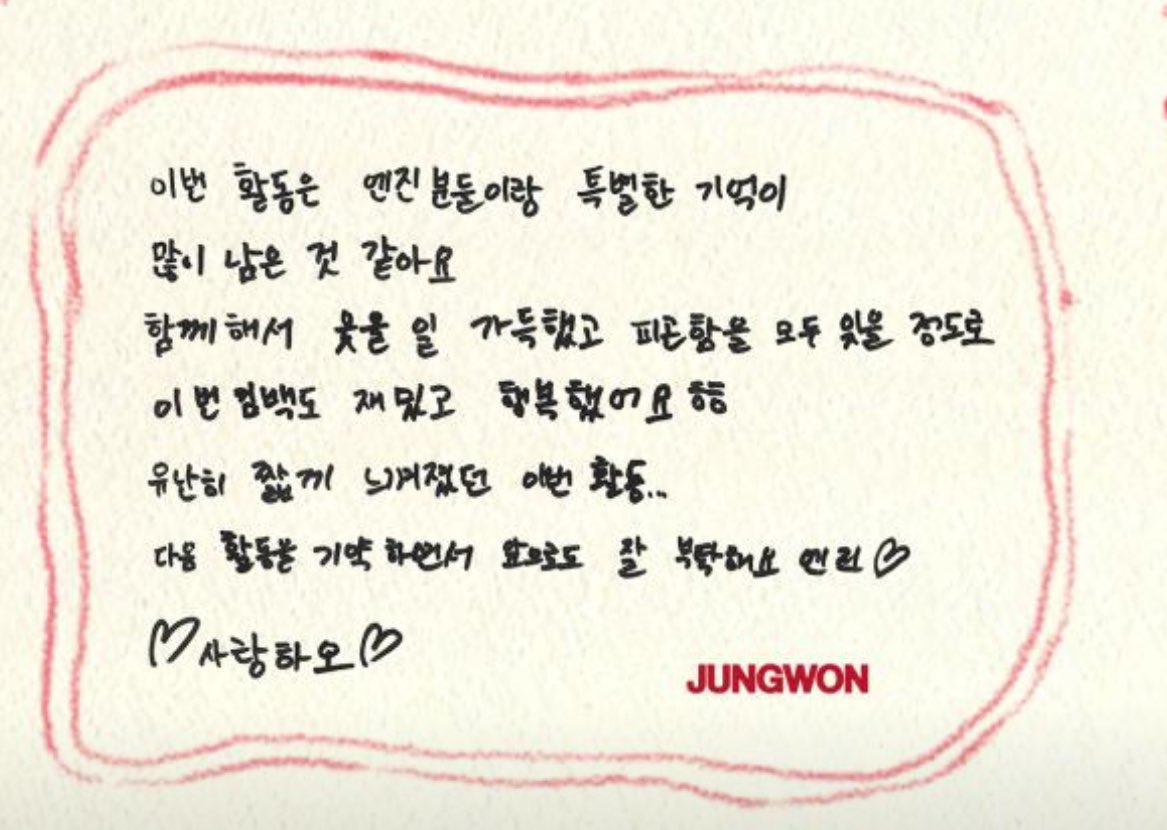 이번 활동은 엔진분들이랑 특별한 기억이
많이 남은 것 같아요
함께해서 웃을 일 가득했고 피곤함을 모두 잊을 정도로
이번 컴백도 재밌고 행복했어요 ㅎㅎ
유난히 짧게 느껴졌던 이번 활동..
다음 활동을 기약하면서 앞으로도 잘 부탁해요 엔리♡
♡사랑하오♡
JUNGWON